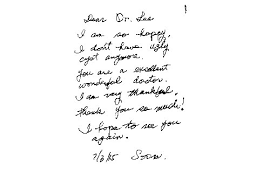 Dear Dr. Lee
I am so happy,
I don't have ugly
cyst anymore.
you are a excellent
wonderful doctor.
I am very thankful.
thank you so much!
I hope to see you
again.